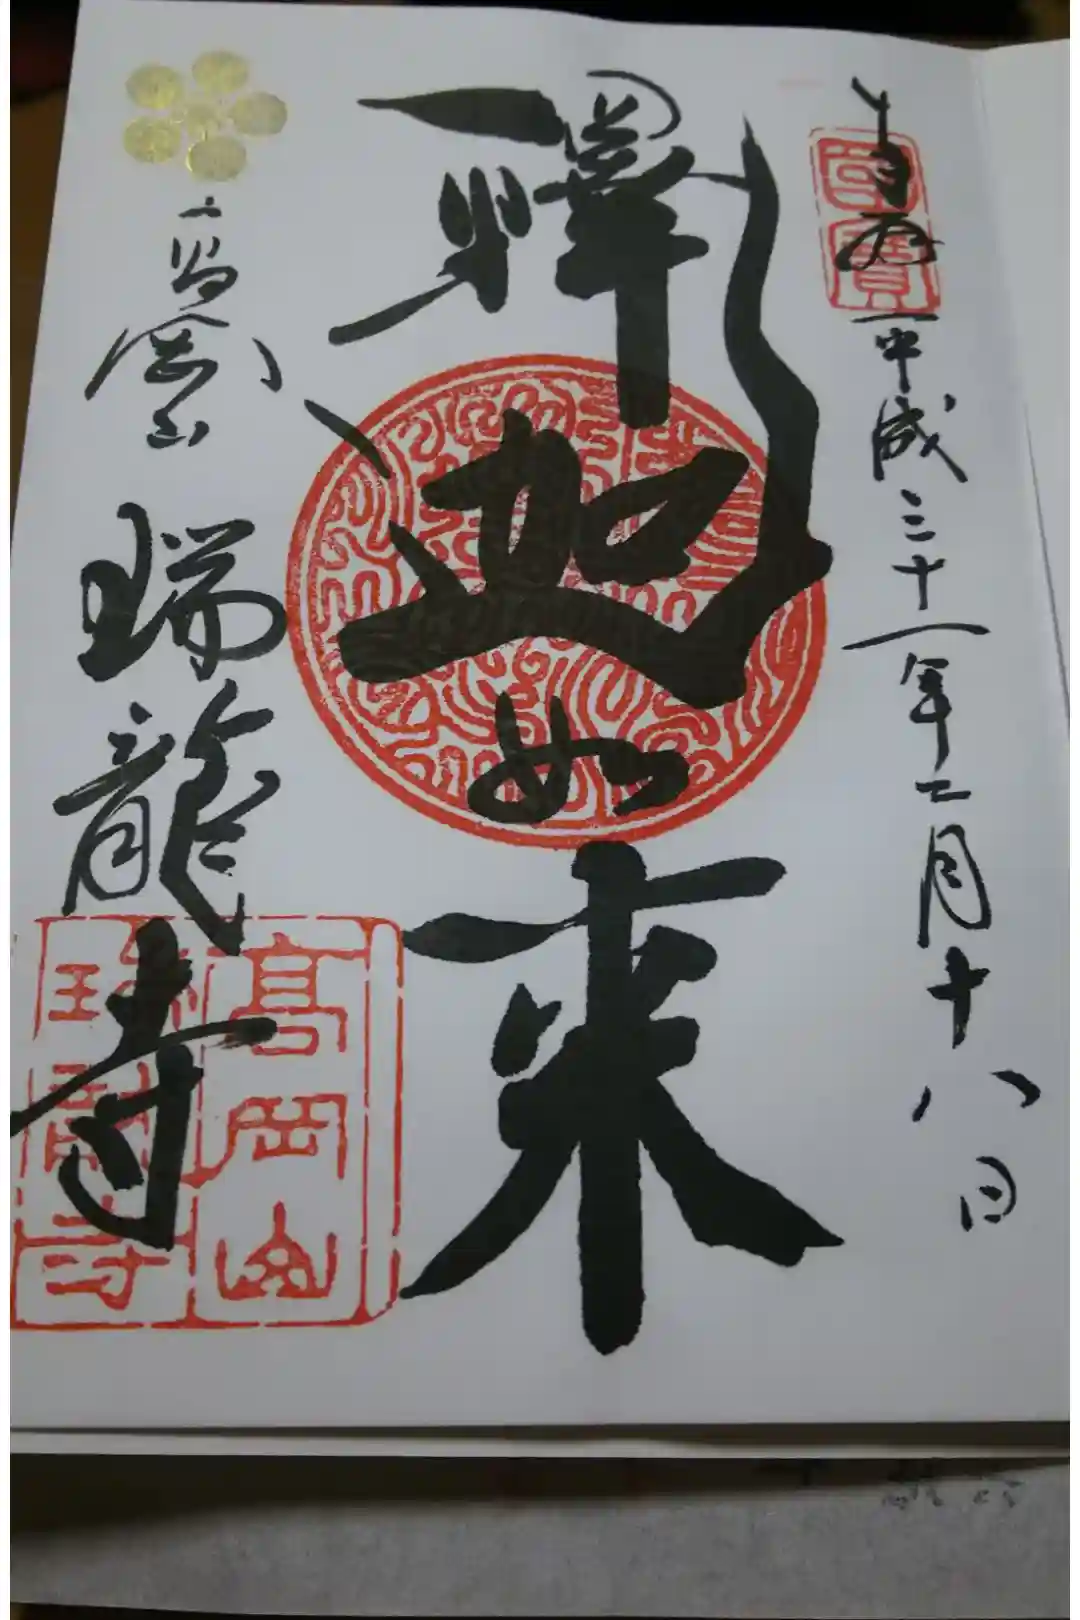 奉拝
國寶
平成三十一年二月十八日
釋迦如来
高岡山
瑞龍寺
高岡山
瑞龍寺